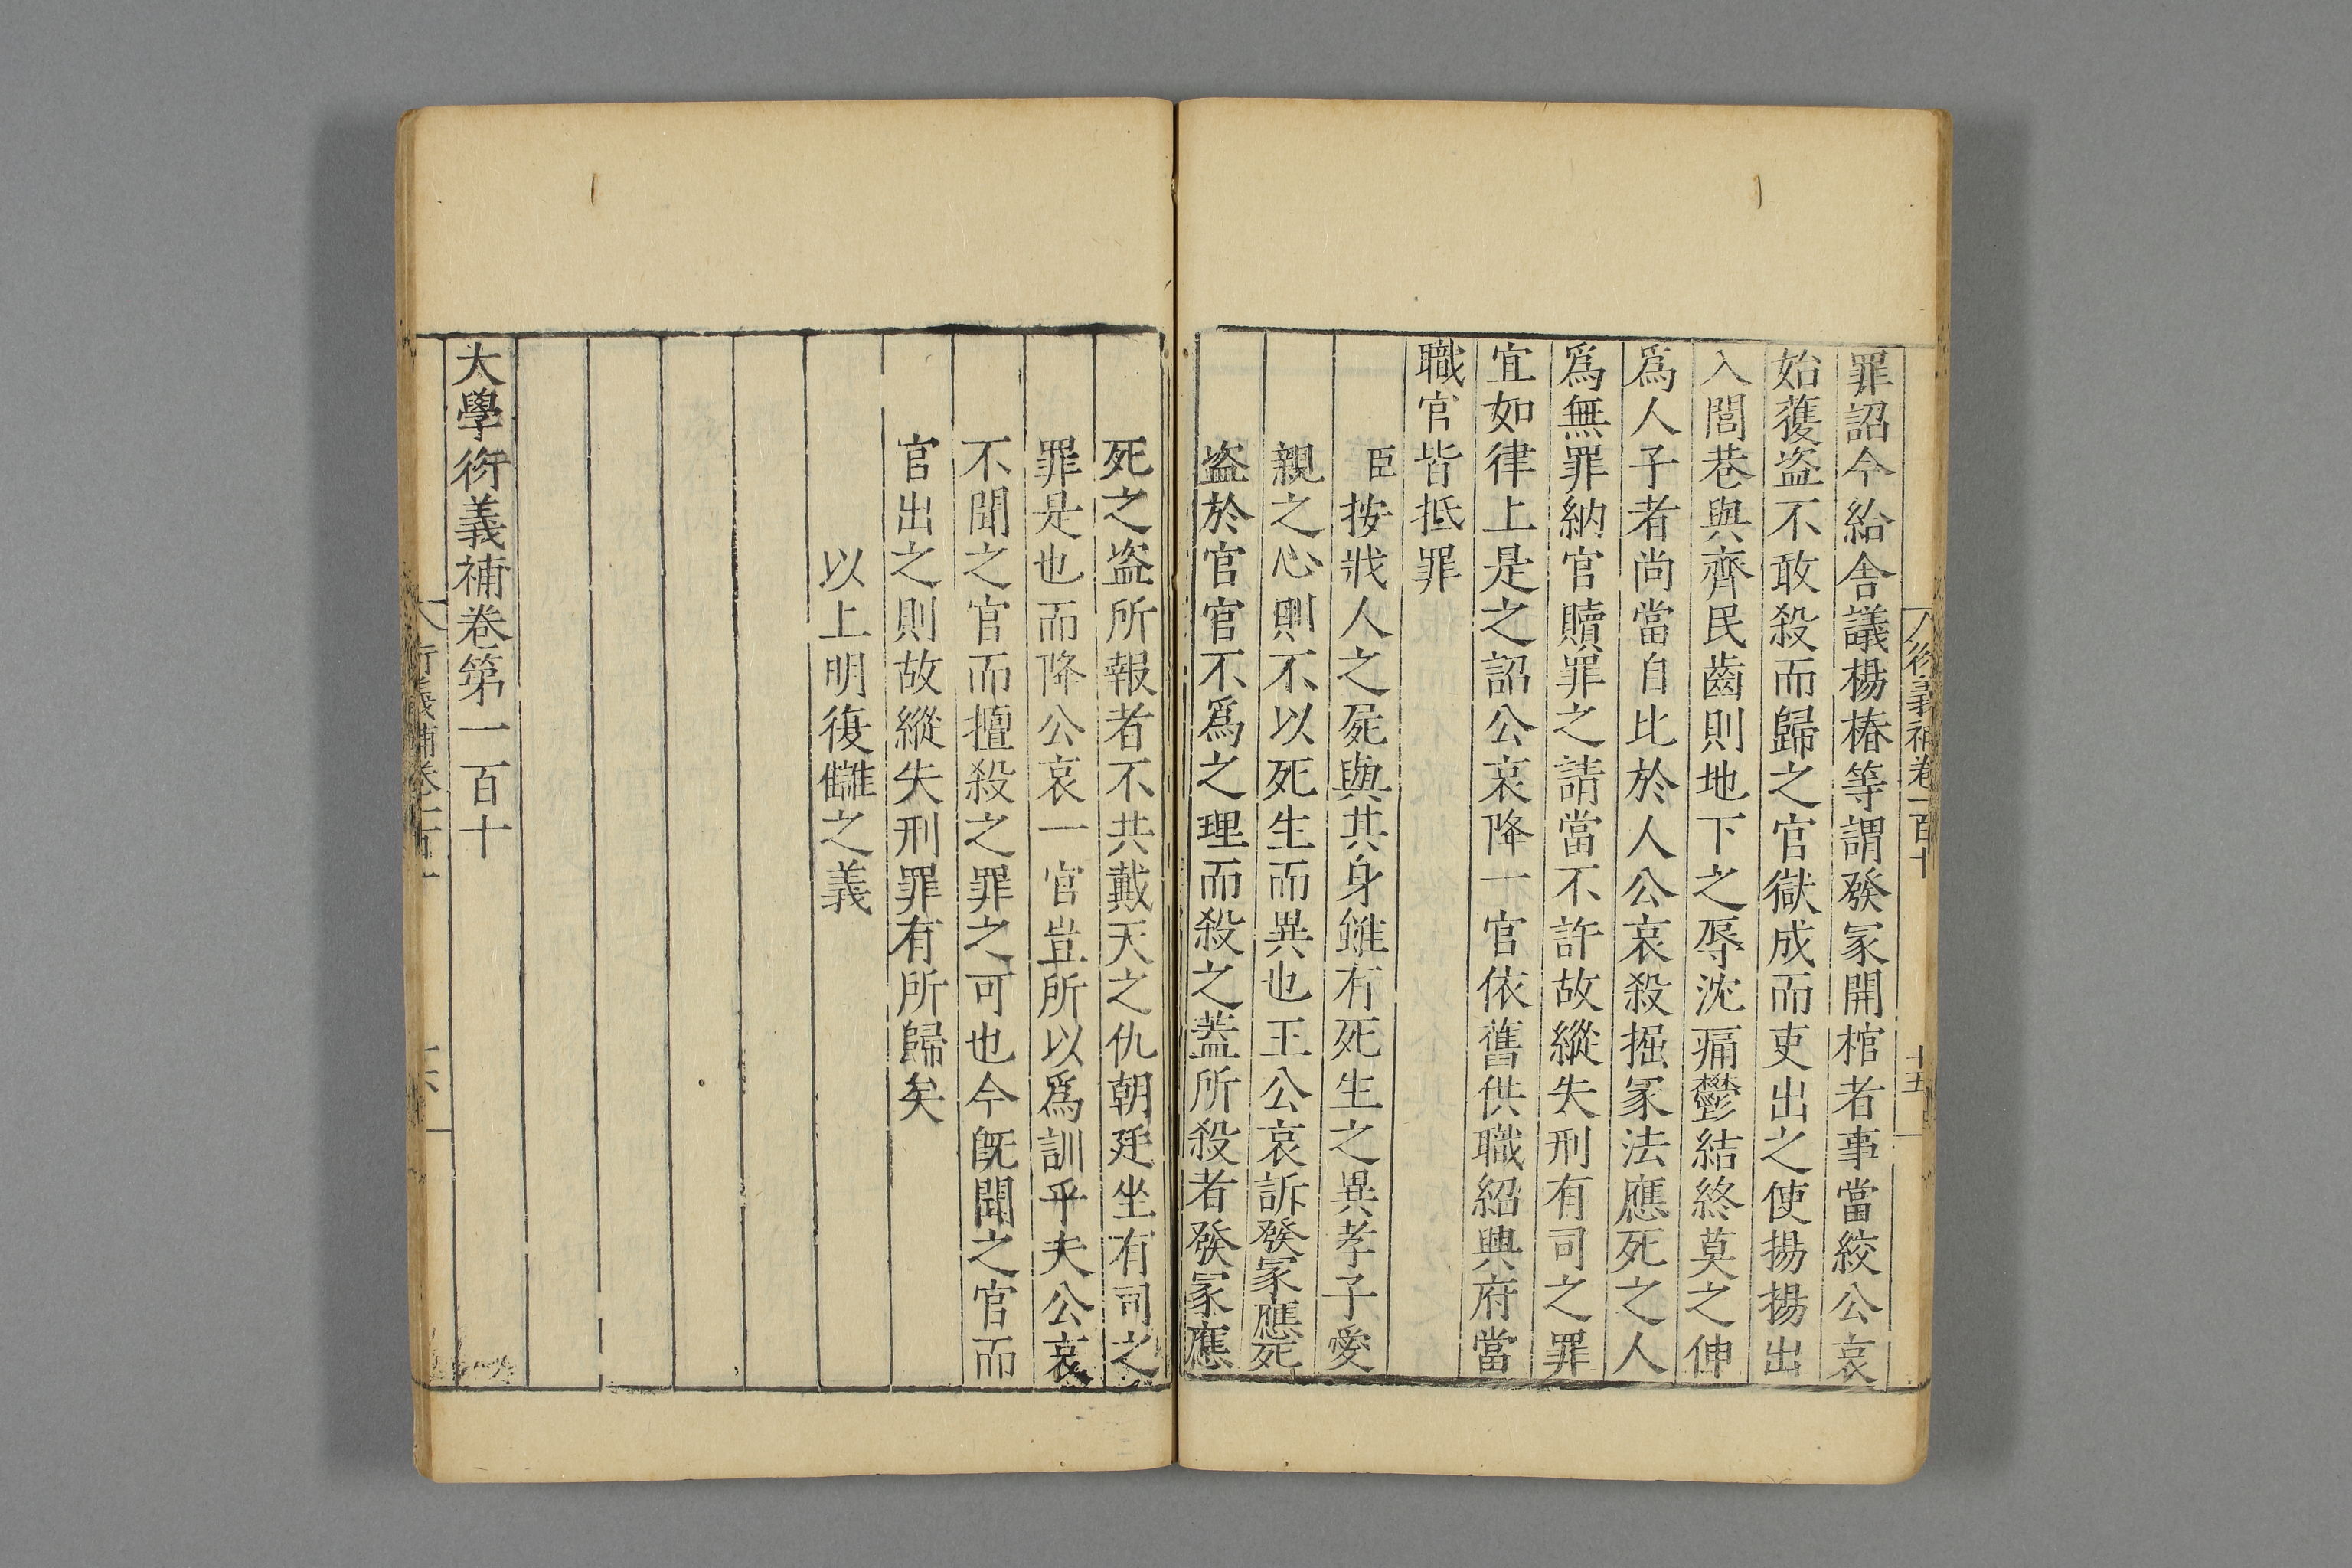 衍義補卷一百十
十五
罪詔令給舎議楊椿等謂發冢開棺者事當絞公哀
始獲盗不敢殺而歸之官獄成而吏出之使揚揚出
入閭巷與齊民齒則地下之辱沈痛鬱結終莫之伸
爲人子者尚當自比於人公哀殺掘冢法應死之人
爲無罪納官贖罪之請當不許故縱失刑有司之罪
宜如律上是之詔公哀降一官依舊供職紹興府當
職官皆抵罪
臣按戕人之屍與其身雖有死生之異孝子愛
親之心則不以死生而異也王公哀訴發冢應死
盗於官官不爲之理而殺之蓋所殺者發冢應
死之盗所報者不共戴天之仇朝廷坐有司之
罪是也而降公哀一官豈所以爲訓乎夫公哀
不聞之官而擅殺之罪之可也今既聞之官而
官出之則故縱失刑罪有所歸矣
以上明復讎之義
大學衍義補卷第一百十